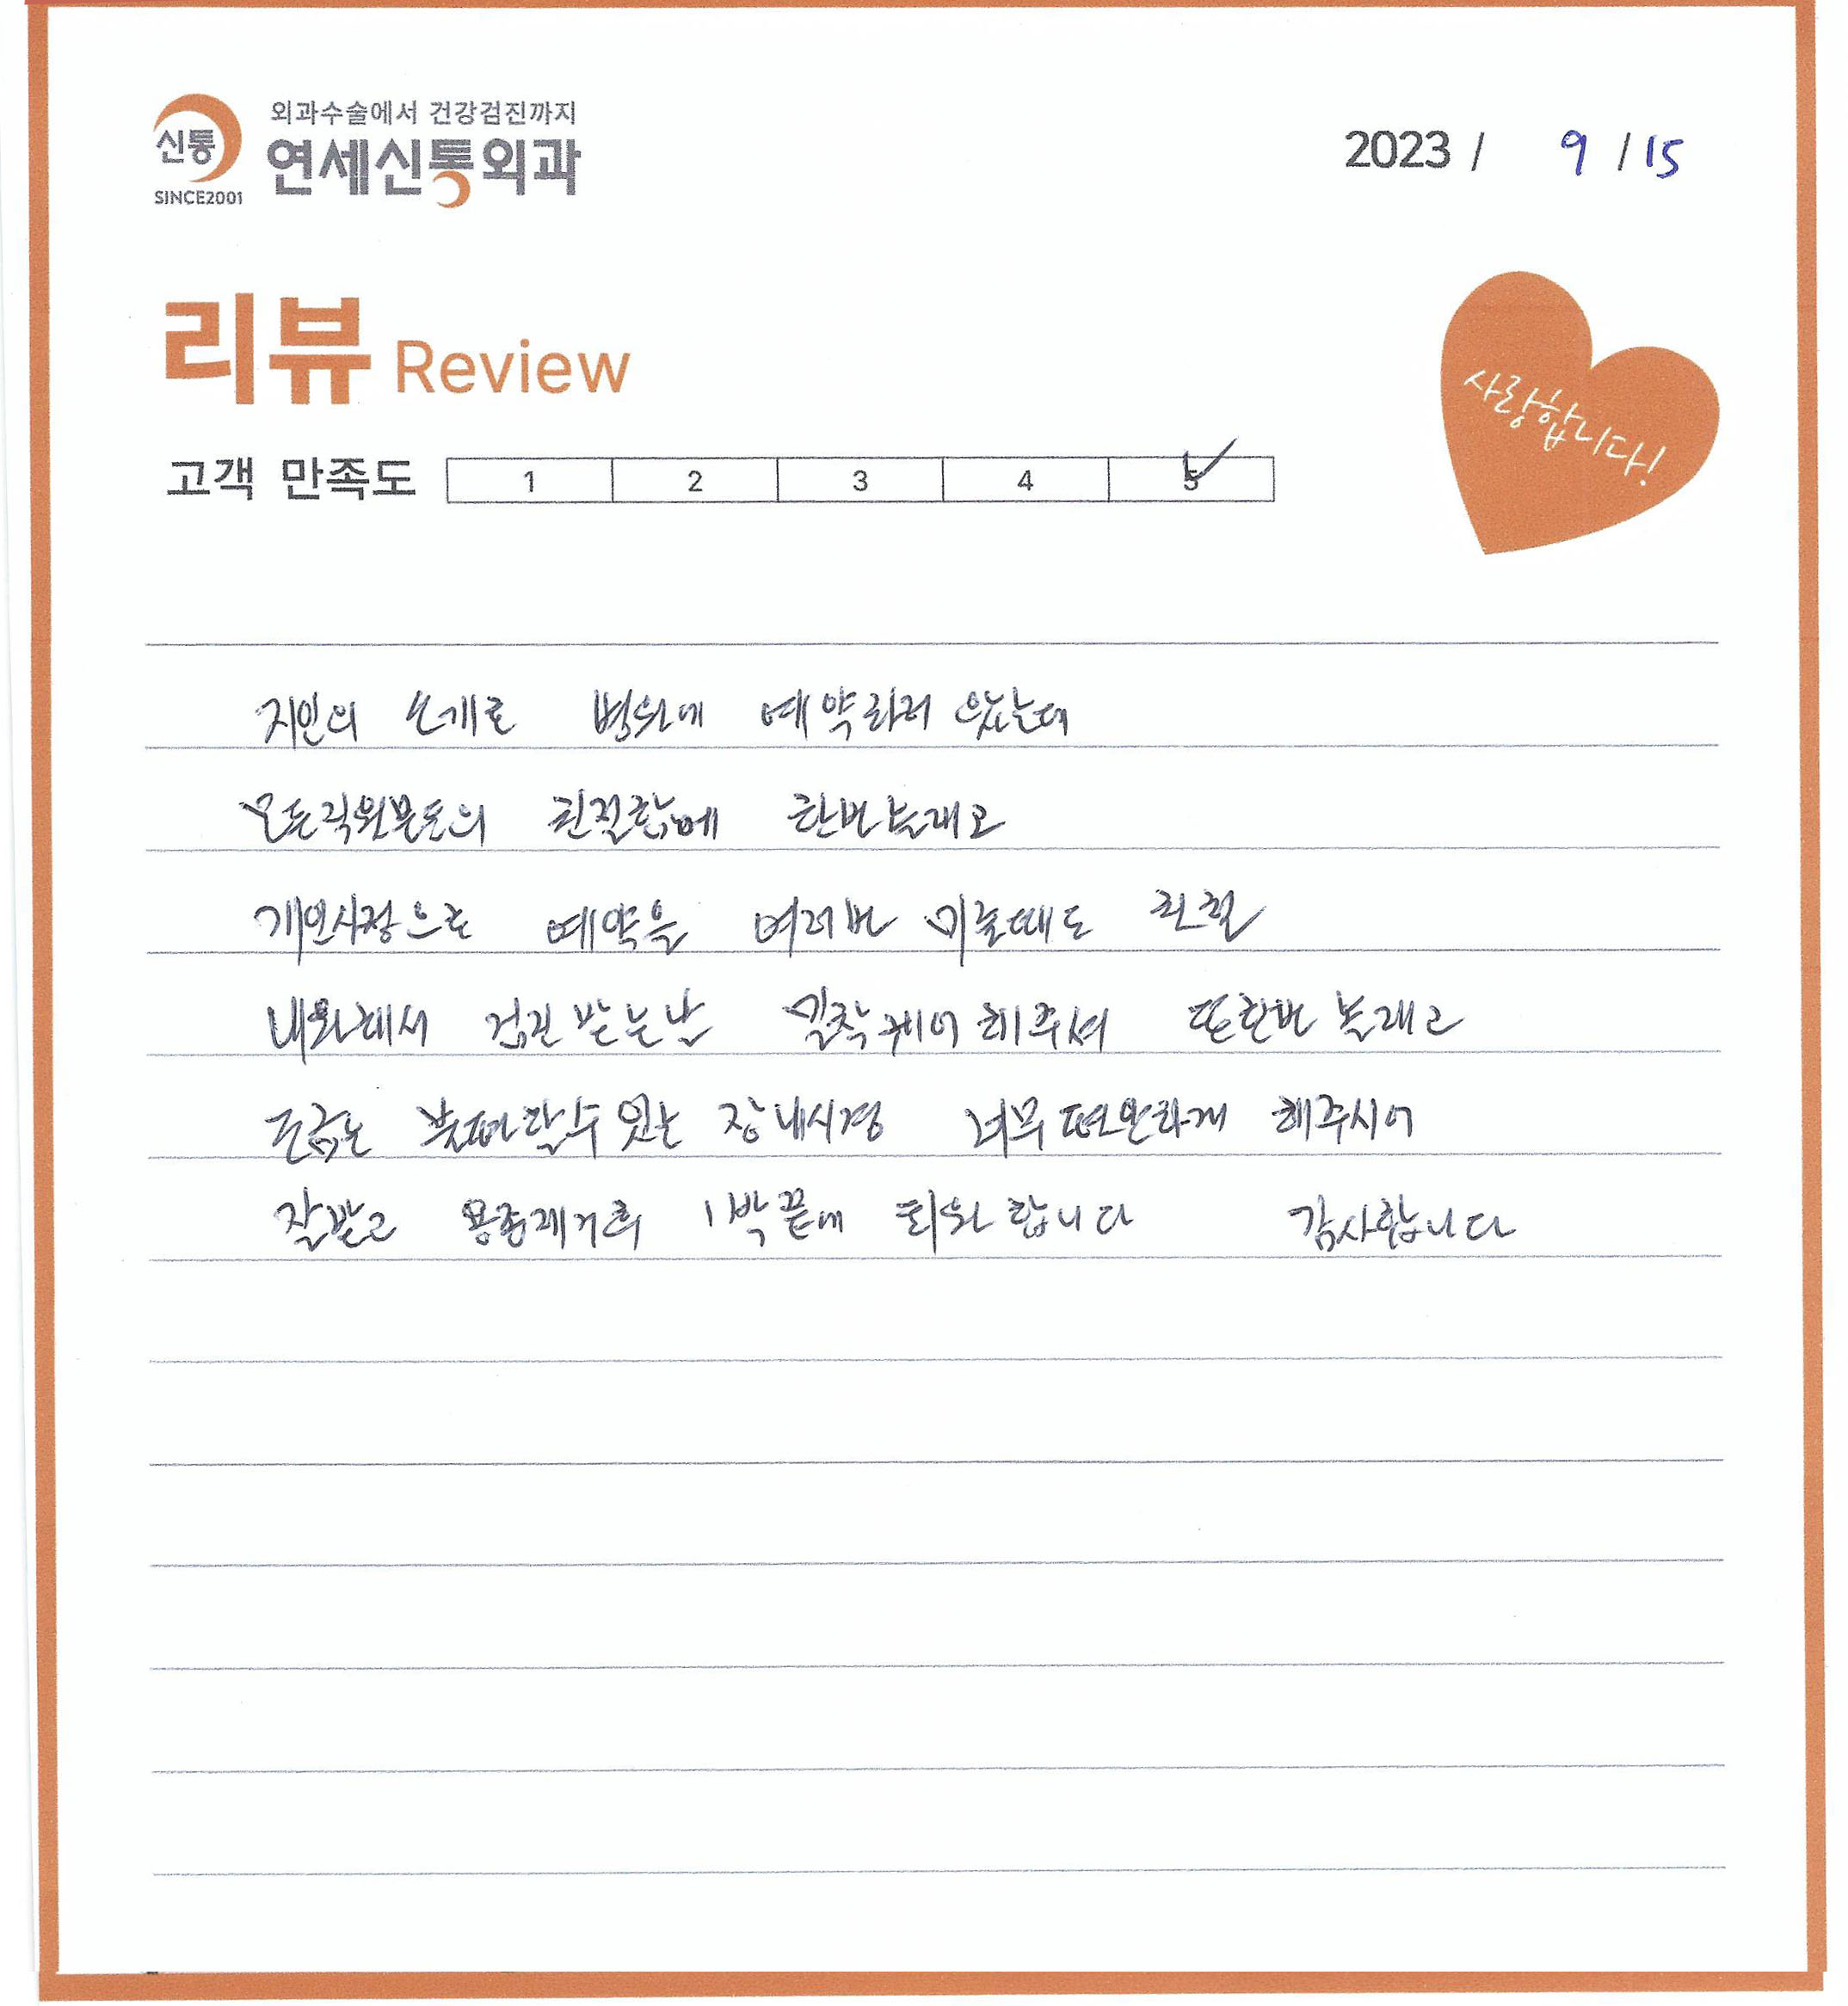 외과수술에서 건강검진까지
신통 연세신통외과
SINCE2001
2023 / 9 / 15
리뷰 Review
사랑합니다!
고객 만족도 1 2 3 4 5
지인의 소개로 병원에 예약하러 왔는데
모든직원분들의 친절함에 한번놀래고
개인사정으로 예약을 여러번 미룰때도 친절
내원해서 검진받는날 밀착케어해주셔 또한번 놀래고
조금은 불편할수 있는 장내시경 너무편안하게 해주시어
잘받고 용종제거후 1박끝에 퇴원합니다 감사합니다